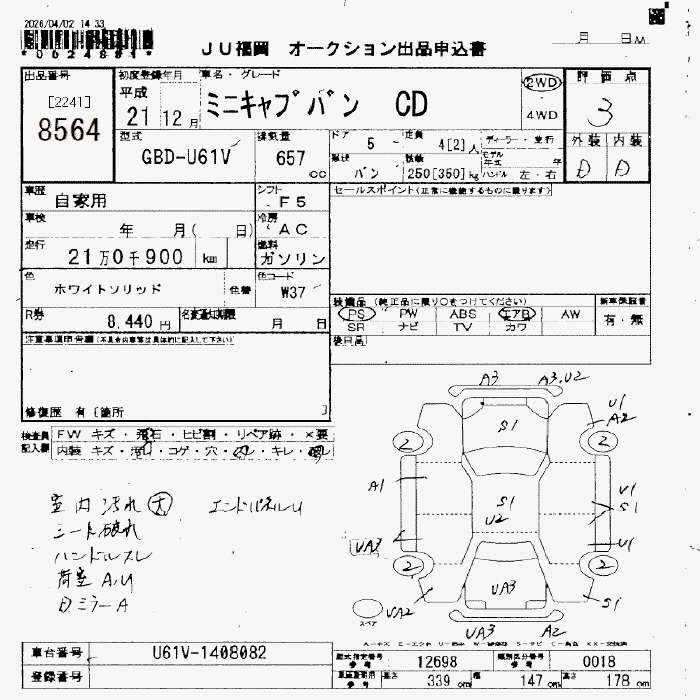 2026/04/02 14 33
*0024884*
JU福岡 オークション出品申込書
月 日 M
出品番号
[2241]
8564
初度登録年月
平成
21 12月
車名・グレード
ミニキャブバン CD
2WD
4WD
評価点
3
外装 内装
D D
型式
GBD-U61V
排気量
657
cc
ドア 5 -
定員 4[2]人
形状 バン
積載 250[350]kg
ディーラー・並行
モデル年式 年
ハンドル 左・右
車歴 自家用
シフト F5
セールスポイント(正常に機能するものに限ります)
車検 年 月( 日)
冷房 AC
走行 21万0千900 km
燃料 ガソリン
色 ホワイトソリッド 色替
色コード W37
装備品 (純正品に限り○をつけてください)
新車保証書
PS PW ABS エアB AW
有・無
SR ナビ TV カワ
R券 8,440円
名変通知期限 月 日
後日品
注意事項申告欄(不具合内容等は具体的に記入して下さい)
修復歴 有〔箇所 〕
検査員記入欄
FW キズ・飛石・ヒビ割・リペア跡・×要
内装 キズ・汚れ・コゲ・穴・
室内汚れ(大) エンドパネルU
シート破れ
ハンドルスレ
荷室A,U
日ミラーA
A3 A3,U2
S1
U1
A2
2 2
A1
S1
U2
U1
S1
UA3
U1
2 2
UA3
UA2
S1
スペア
UA3 A2
車台番号 U61V-1408082
登録番号
型式指定番号 参考 12698
類別区分番号 参考 0018
参考 長さ 339 cm 幅 147 cm 高さ 178 cm